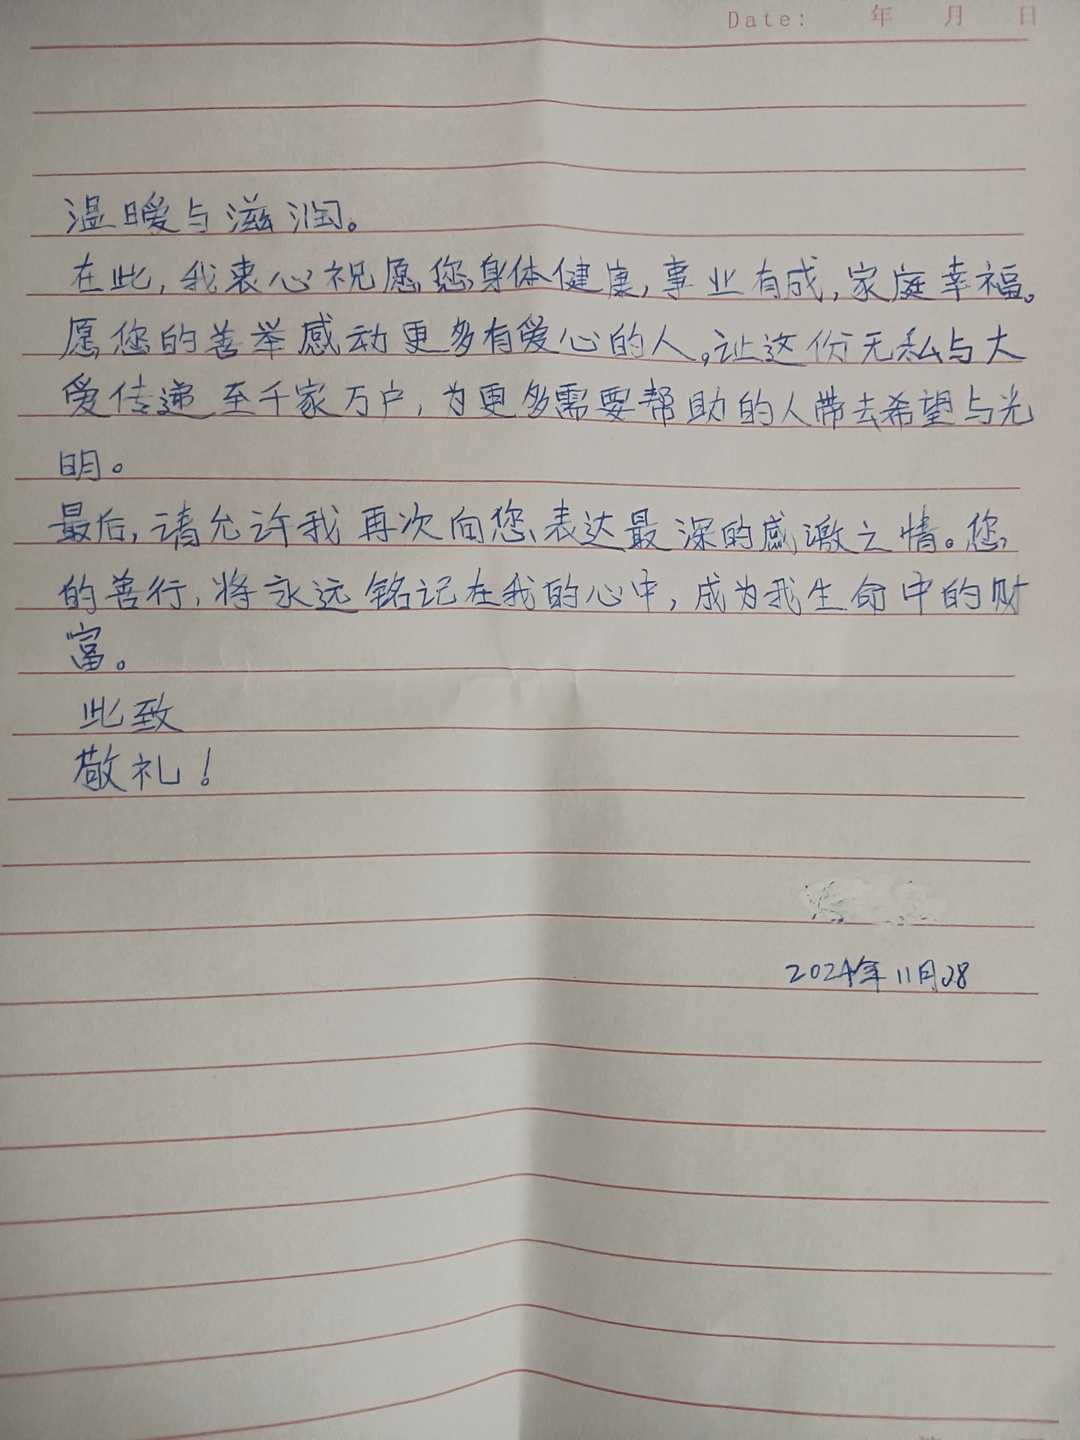 Date: 年 月 日
温暖与滋润。
在此,我衷心祝愿您身体健康,事业有成,家庭幸福。
愿您的善举感动更多有爱心的人,让这份无私与大
爱传递至千家万户,为更多需要帮助的人带去希望与光
明。
最后,请允许我再次向您表达最深的感激之情。您
的善行,将永远铭记在我的心中,成为我生命中的财
富。
此致
敬礼!
2024年11月28